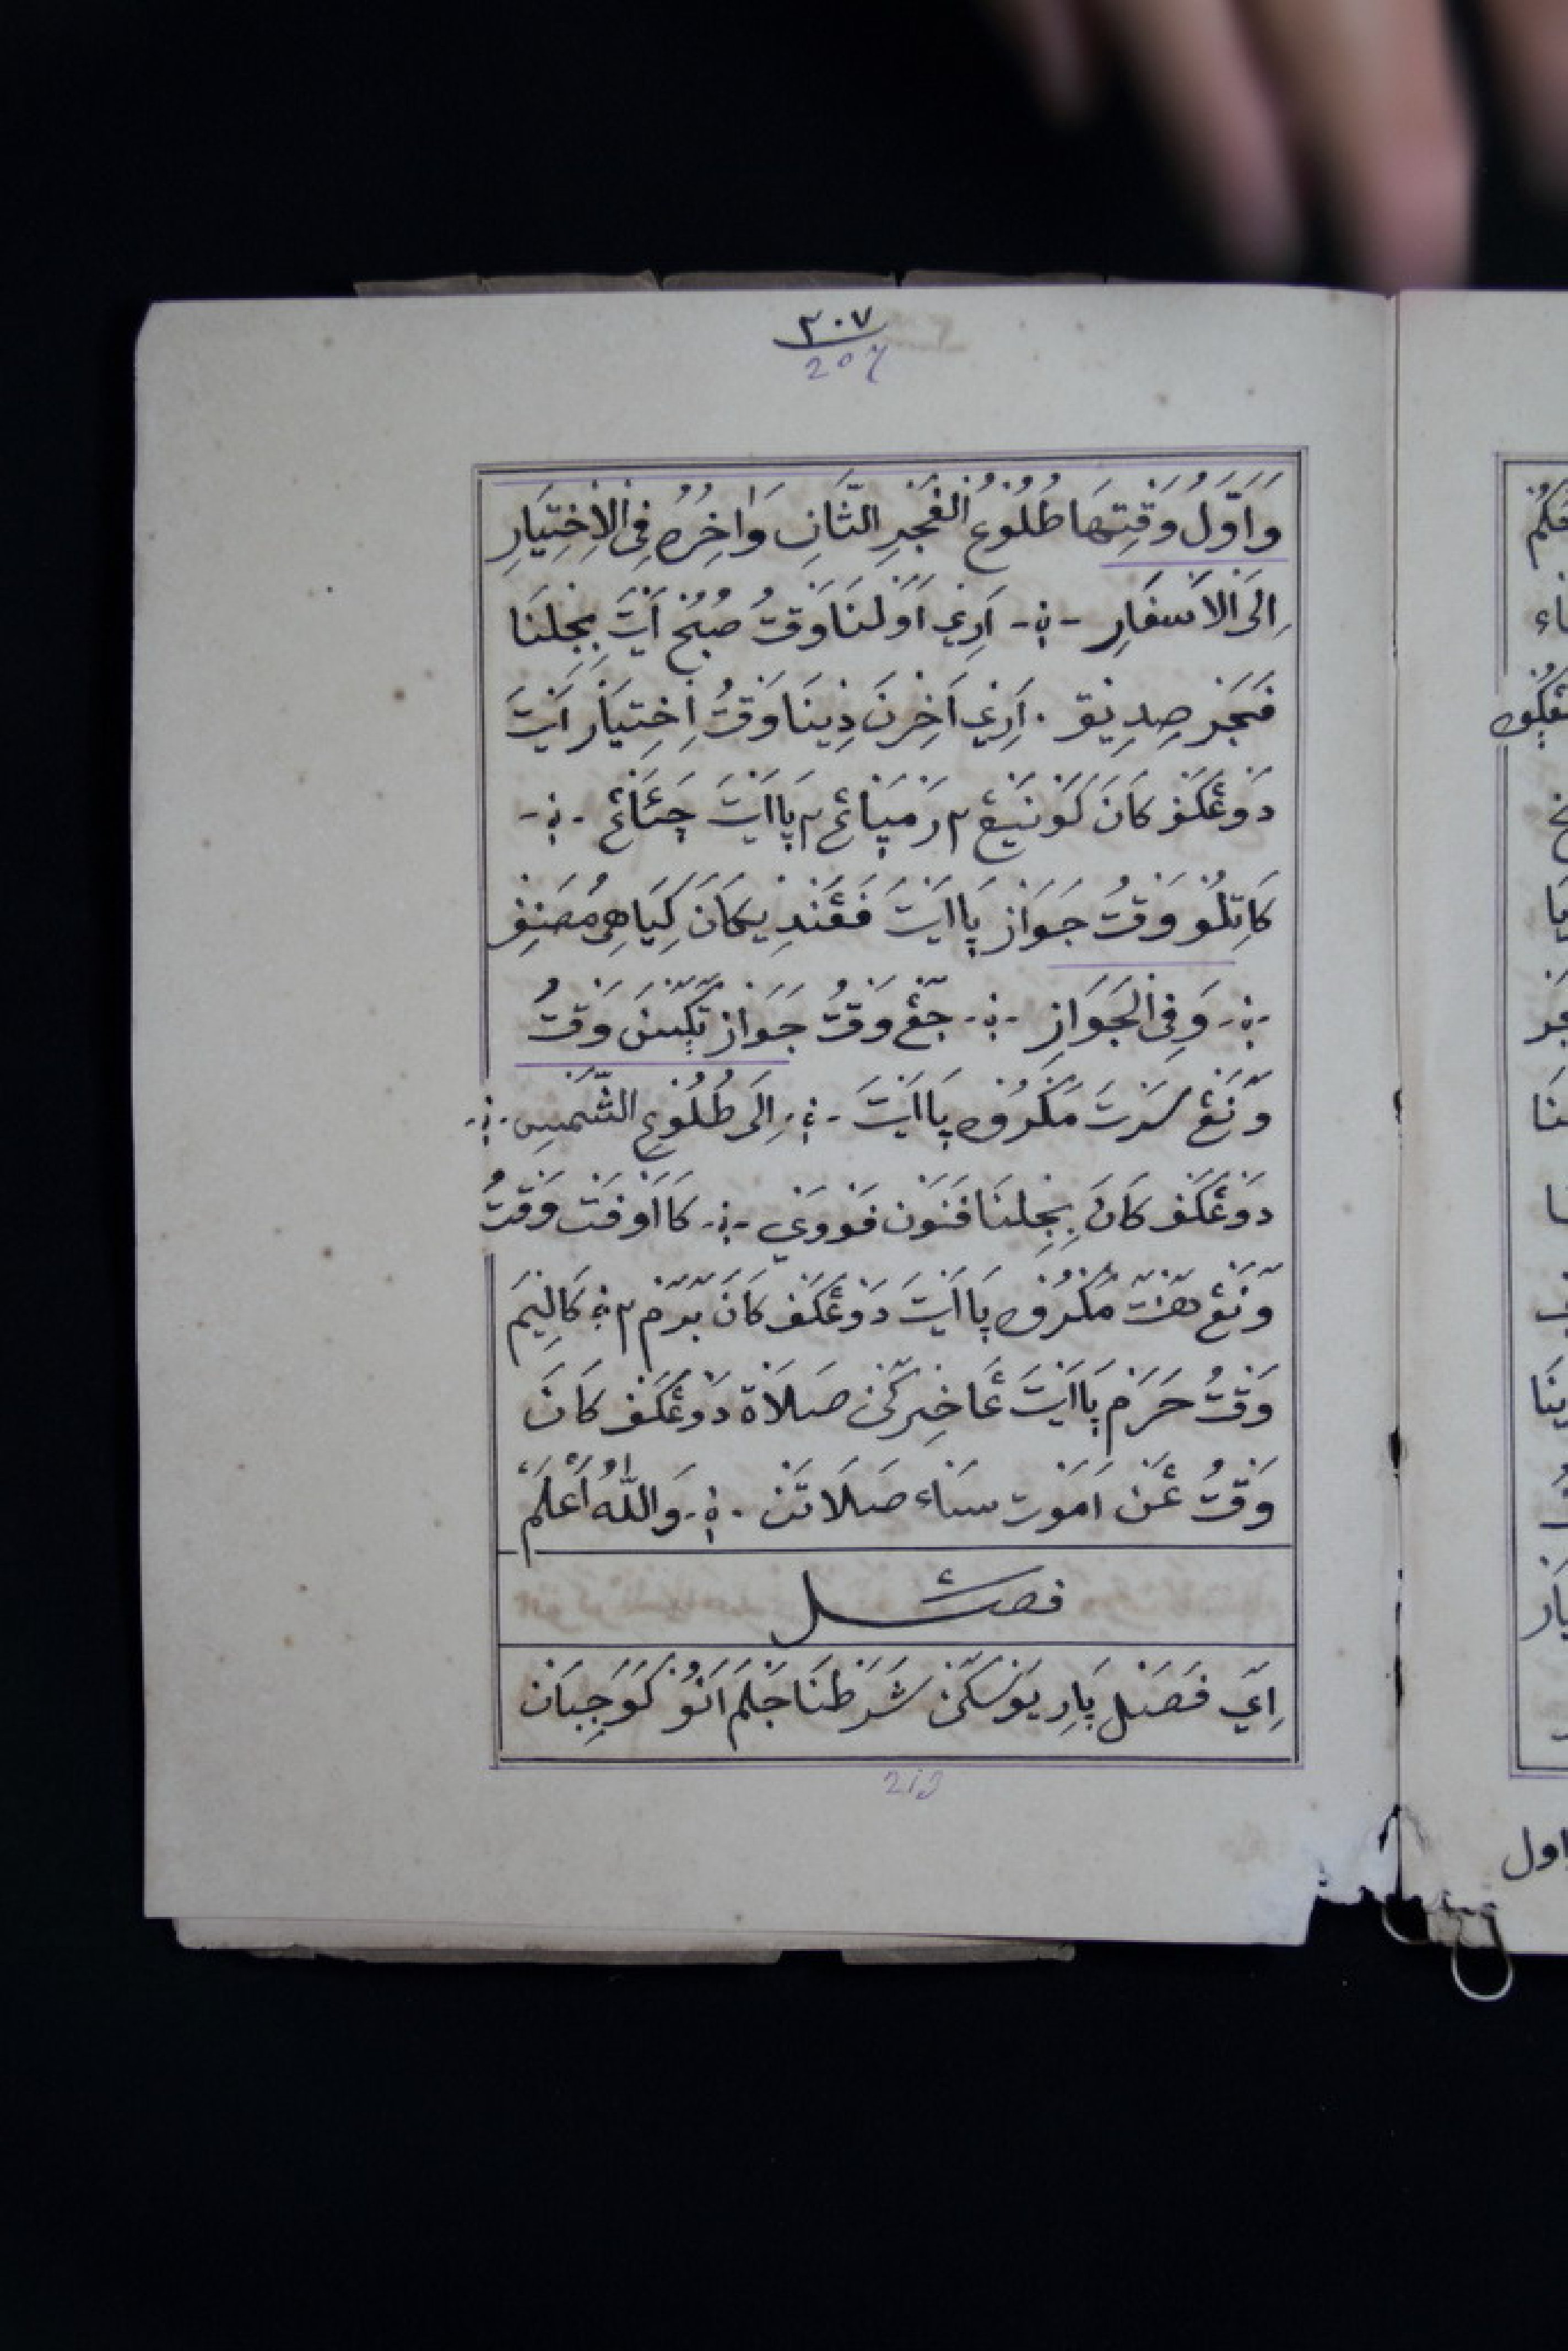 ٢٠٧
207
وَاَوَّلُ وَقْتِهَا طُلُوْعُ الْفَجْرِ الثَّانِ وَاٰخِرُهُ فِى الْاِخْتِيَارِ
اِلَى الْاَسْفَارِ -:- اَرْتِيْ اَوَّلْنَا وَقْتُ صُبُحْ اَيْتَ بِجِلْنَا
فَجَرْ صِدِيْق . اَرْتِيْ اَخِرْنَ ذِيْنَا وَقْتُ اِخْتِيَارْ اَيْتَ
دَوْغْكَفْ كَانَ كَوْنَيْڠ ٢ رَمْڽَاڠ ٢ ڽَااَيْتَ چَهَاڠ -:-
كَاتِلُوْ وَقْتُ جَوَازْ ڽَااَيْتَ فَڠَنْدِيْكَانَ كِيَاهِى مُصَنِفْ
-:- وَفِى الْجَوَازِ -:- جَڠْ وَقْتُ جَوَازْ تَكَّسَنَ وَقْتُ
وَنَڠْ سَرَتَ مَكْرُوْه ڽَااَيْتَ -:- اِلَى طُلُوْعِ الشَّمْسِ -:-
دَوْغْكَفْ كَانَ بِجِلْنَا فَنَوْن فَوْوَيْ -:- كَااَوْفَتْ وَقْتُ
وَنَڠْ هَنْتَ مَكْرُوْه ڽَااَيْتَ دَوْغْكَفْ كَانَ بَرَمْ ٢ -:- كَالِيْمَ
وَقْتُ حَرَمْ ڽَااَيْتَ ڠَاخِيْرَكَنْ صَلَاةْ دَوْغْكَفْ كَانَ
وَقْتُ ڠَنْ اَمَوْت سَنَاء صَلَاتَنْ -:- وَاللهُ اَعْلَمْ
فصل
اِيَيْ فَصَلْ ڽَارِيَوْسَكَنْ شَرَطْنَا جَلْمَ اَنُوْ كَوَجِبَانْ
213